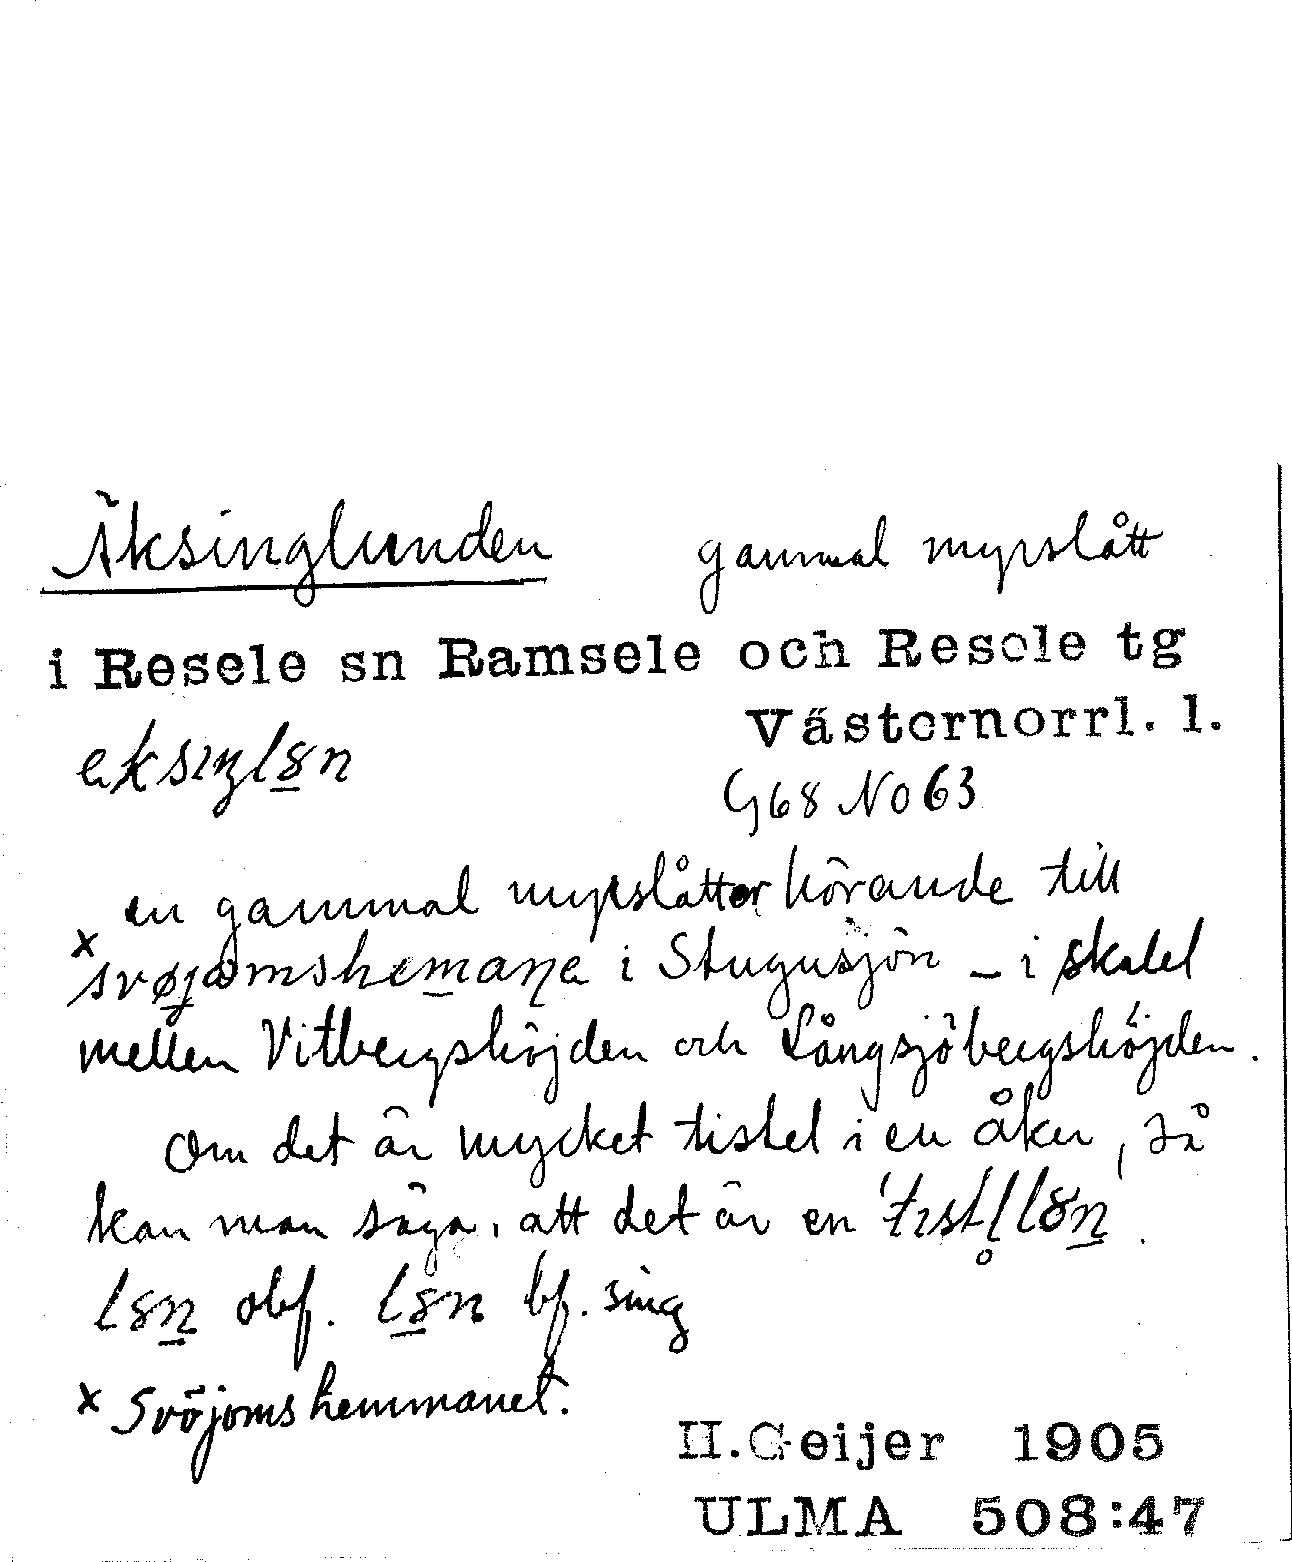 Äksinglunden gammal myrslått
i Resele sn Ramsele och Resele tg
Västernorrl. l.
eksıŋlȣ̱n
G68 No 63
en gammal myrslåtter hörande till
x svøjomshemaṉa i Stugusjön – i skalel
mellen Vitbergshöjden och Långsjöbergshöjden.
Om det är mycket tistel i en åker, så
kan man säga, att det är en 'tıstl̥lȣṉ'.
lȣṉ obf. lȣ̱n bf. sing
x Svöjomshemmanet.
H. Geijer 1905
ULMA 508:47